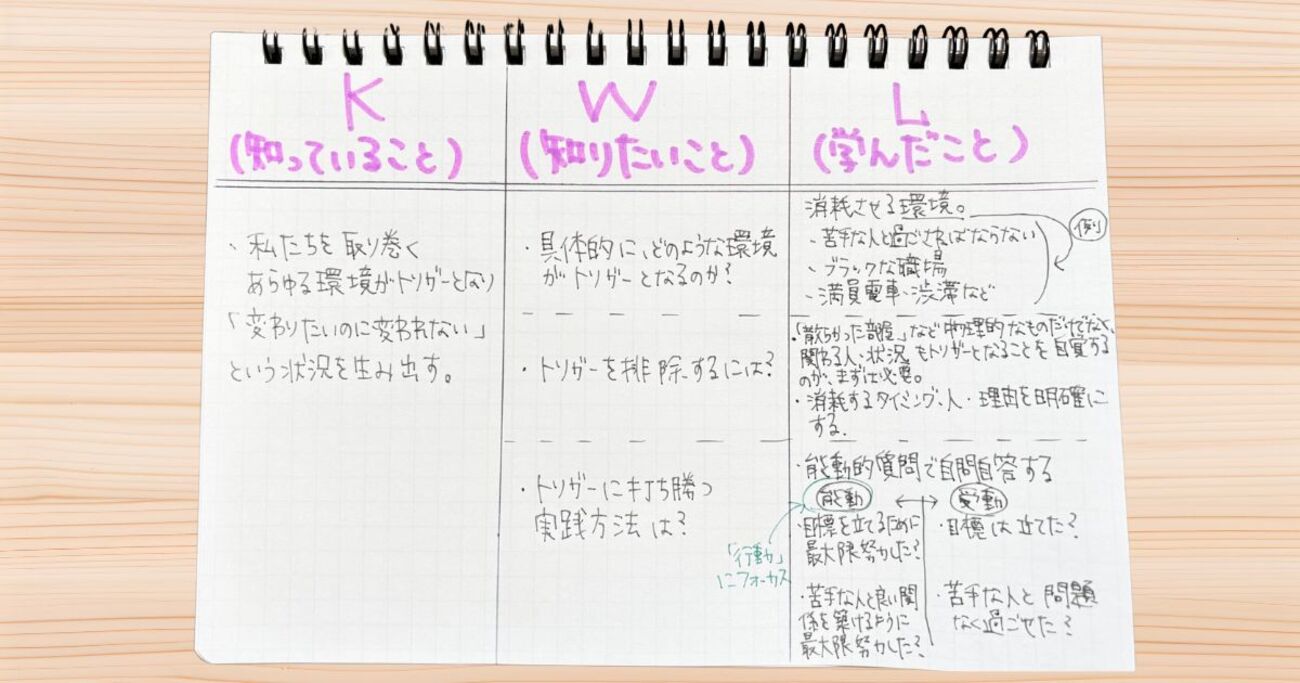 K
(知っていること)
・私たちを取り巻く
あらゆる環境がトリガーとなり
「変わりたいのに変われない」
という状況を生み出す。
W
(知りたいこと)
・具体的に、どのような環境
がトリガーとなるのか?
・トリガーを排除するには?
・トリガーに打ち勝つ
実践方法は?
L
(学んだこと)
消耗させる環境。
例
・苦手な人と過ごさねばならない
・ブラックな職場
・満員電車・渋滞など
・「散らかった部屋」など物理的なものだけでなく、
関わる人・状況もトリガーとなることを自覚する
のが、まずは必要。
・消耗するタイミング、人・理由を明確に
する.
・能動的質問で自問自答する
能動 ←→ 受動
「行動」
にフォーカス
・目標を立てるために
最大限努力した?
・苦手な人と良い関
係を築けるように
最大限努力した?
・目標は立てた?
・苦手な人と問題
なく過ごせた?